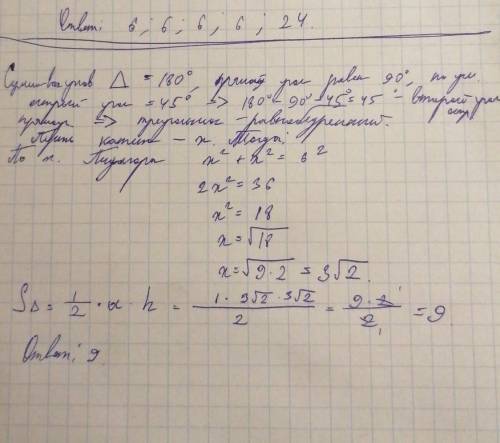 Ответ: 6; 6; 6; 6; 24.
Сумма всех углов Δ = 180°, прямой угол равен 90°, по усл.
острый угол = 45° → 180° - 90° - 45° = 45° - второй угол
→ треугольник - равнобедренный.
катет - x. Тогда:
По т. Пифагора x² + x² = 6²
2x² = 36
x² = 18
x = √18
x = √9·2 = 3√2.
SΔ = 1/2 · a · h = 1 · 3√2 · 3√2 / 2 = 9 · 2 / 2 = 9
Ответ: 9